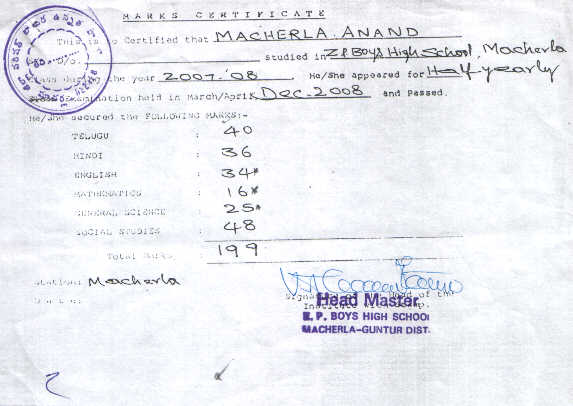 MARKS CERTIFICATE
This is to Certified that MACHERLA. ANAND
studied in Z.P. Boys High School, Macherla
Class during the year 2007-'08. He/She appeared for Half-yearly
Examination held in March/April Dec. 2008 and Passed.
He/She secured the FOLLOWING MARKS:-
TELUGU : 40
HINDI : 36
ENGLISH : 34*
MATHEMATICS : 16*
GENERAL SCIENCE : 25*
SOCIAL STUDIES : 48
Total Marks : 199
Station: Macherla
Signature of the Head of the
Head Master
Institute with Stamp.
Z. P. BOYS HIGH SCHOOL
MACHERLA-GUNTUR DIST.